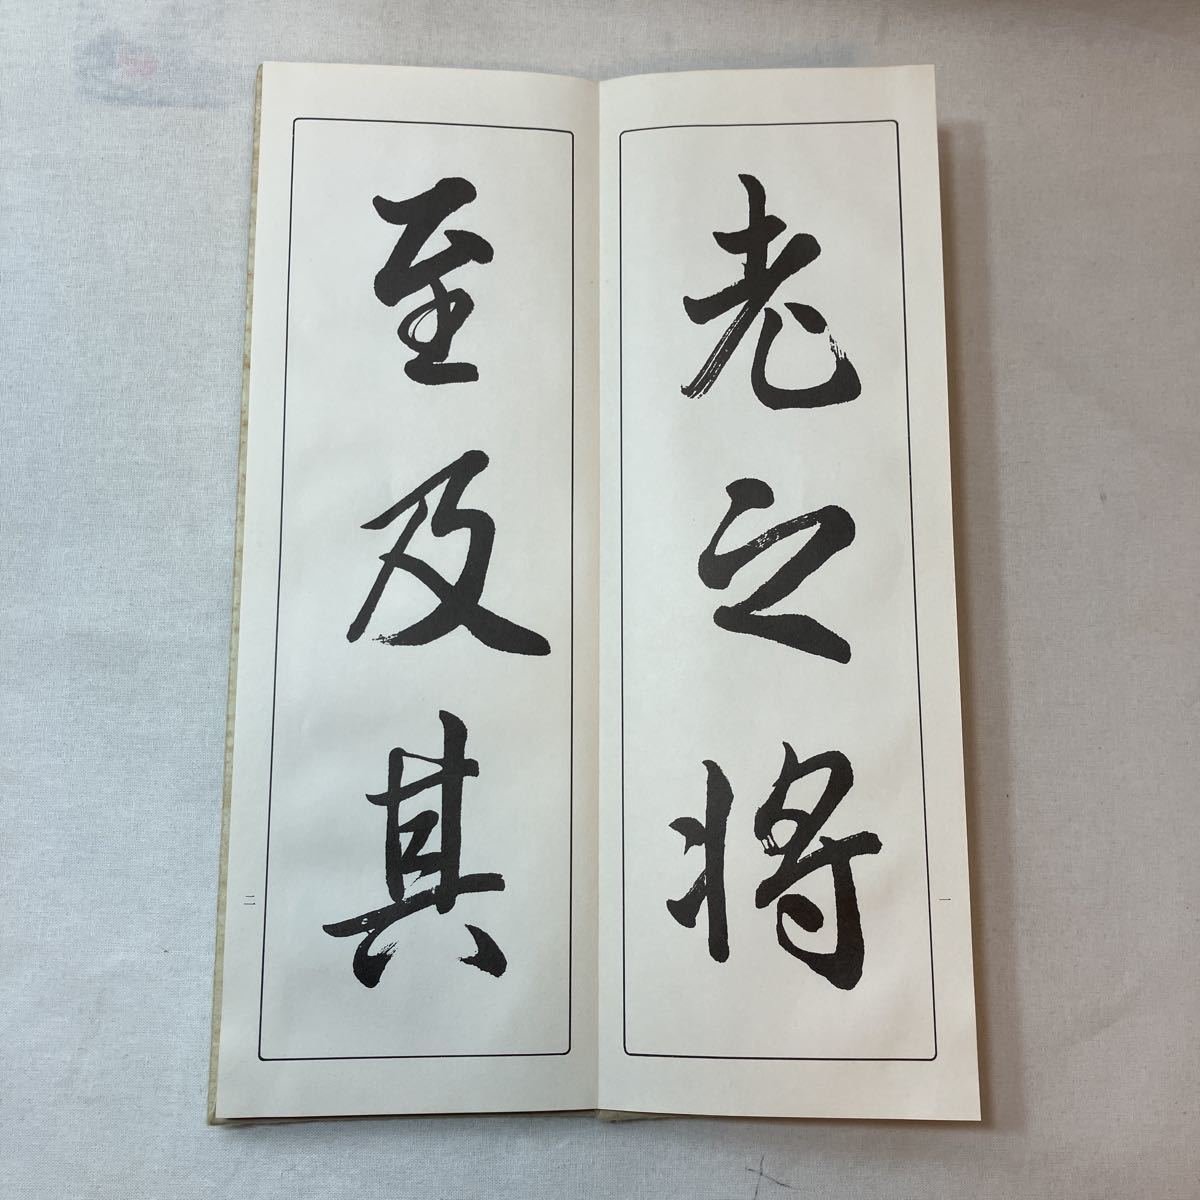 老之将
一
至及其
二